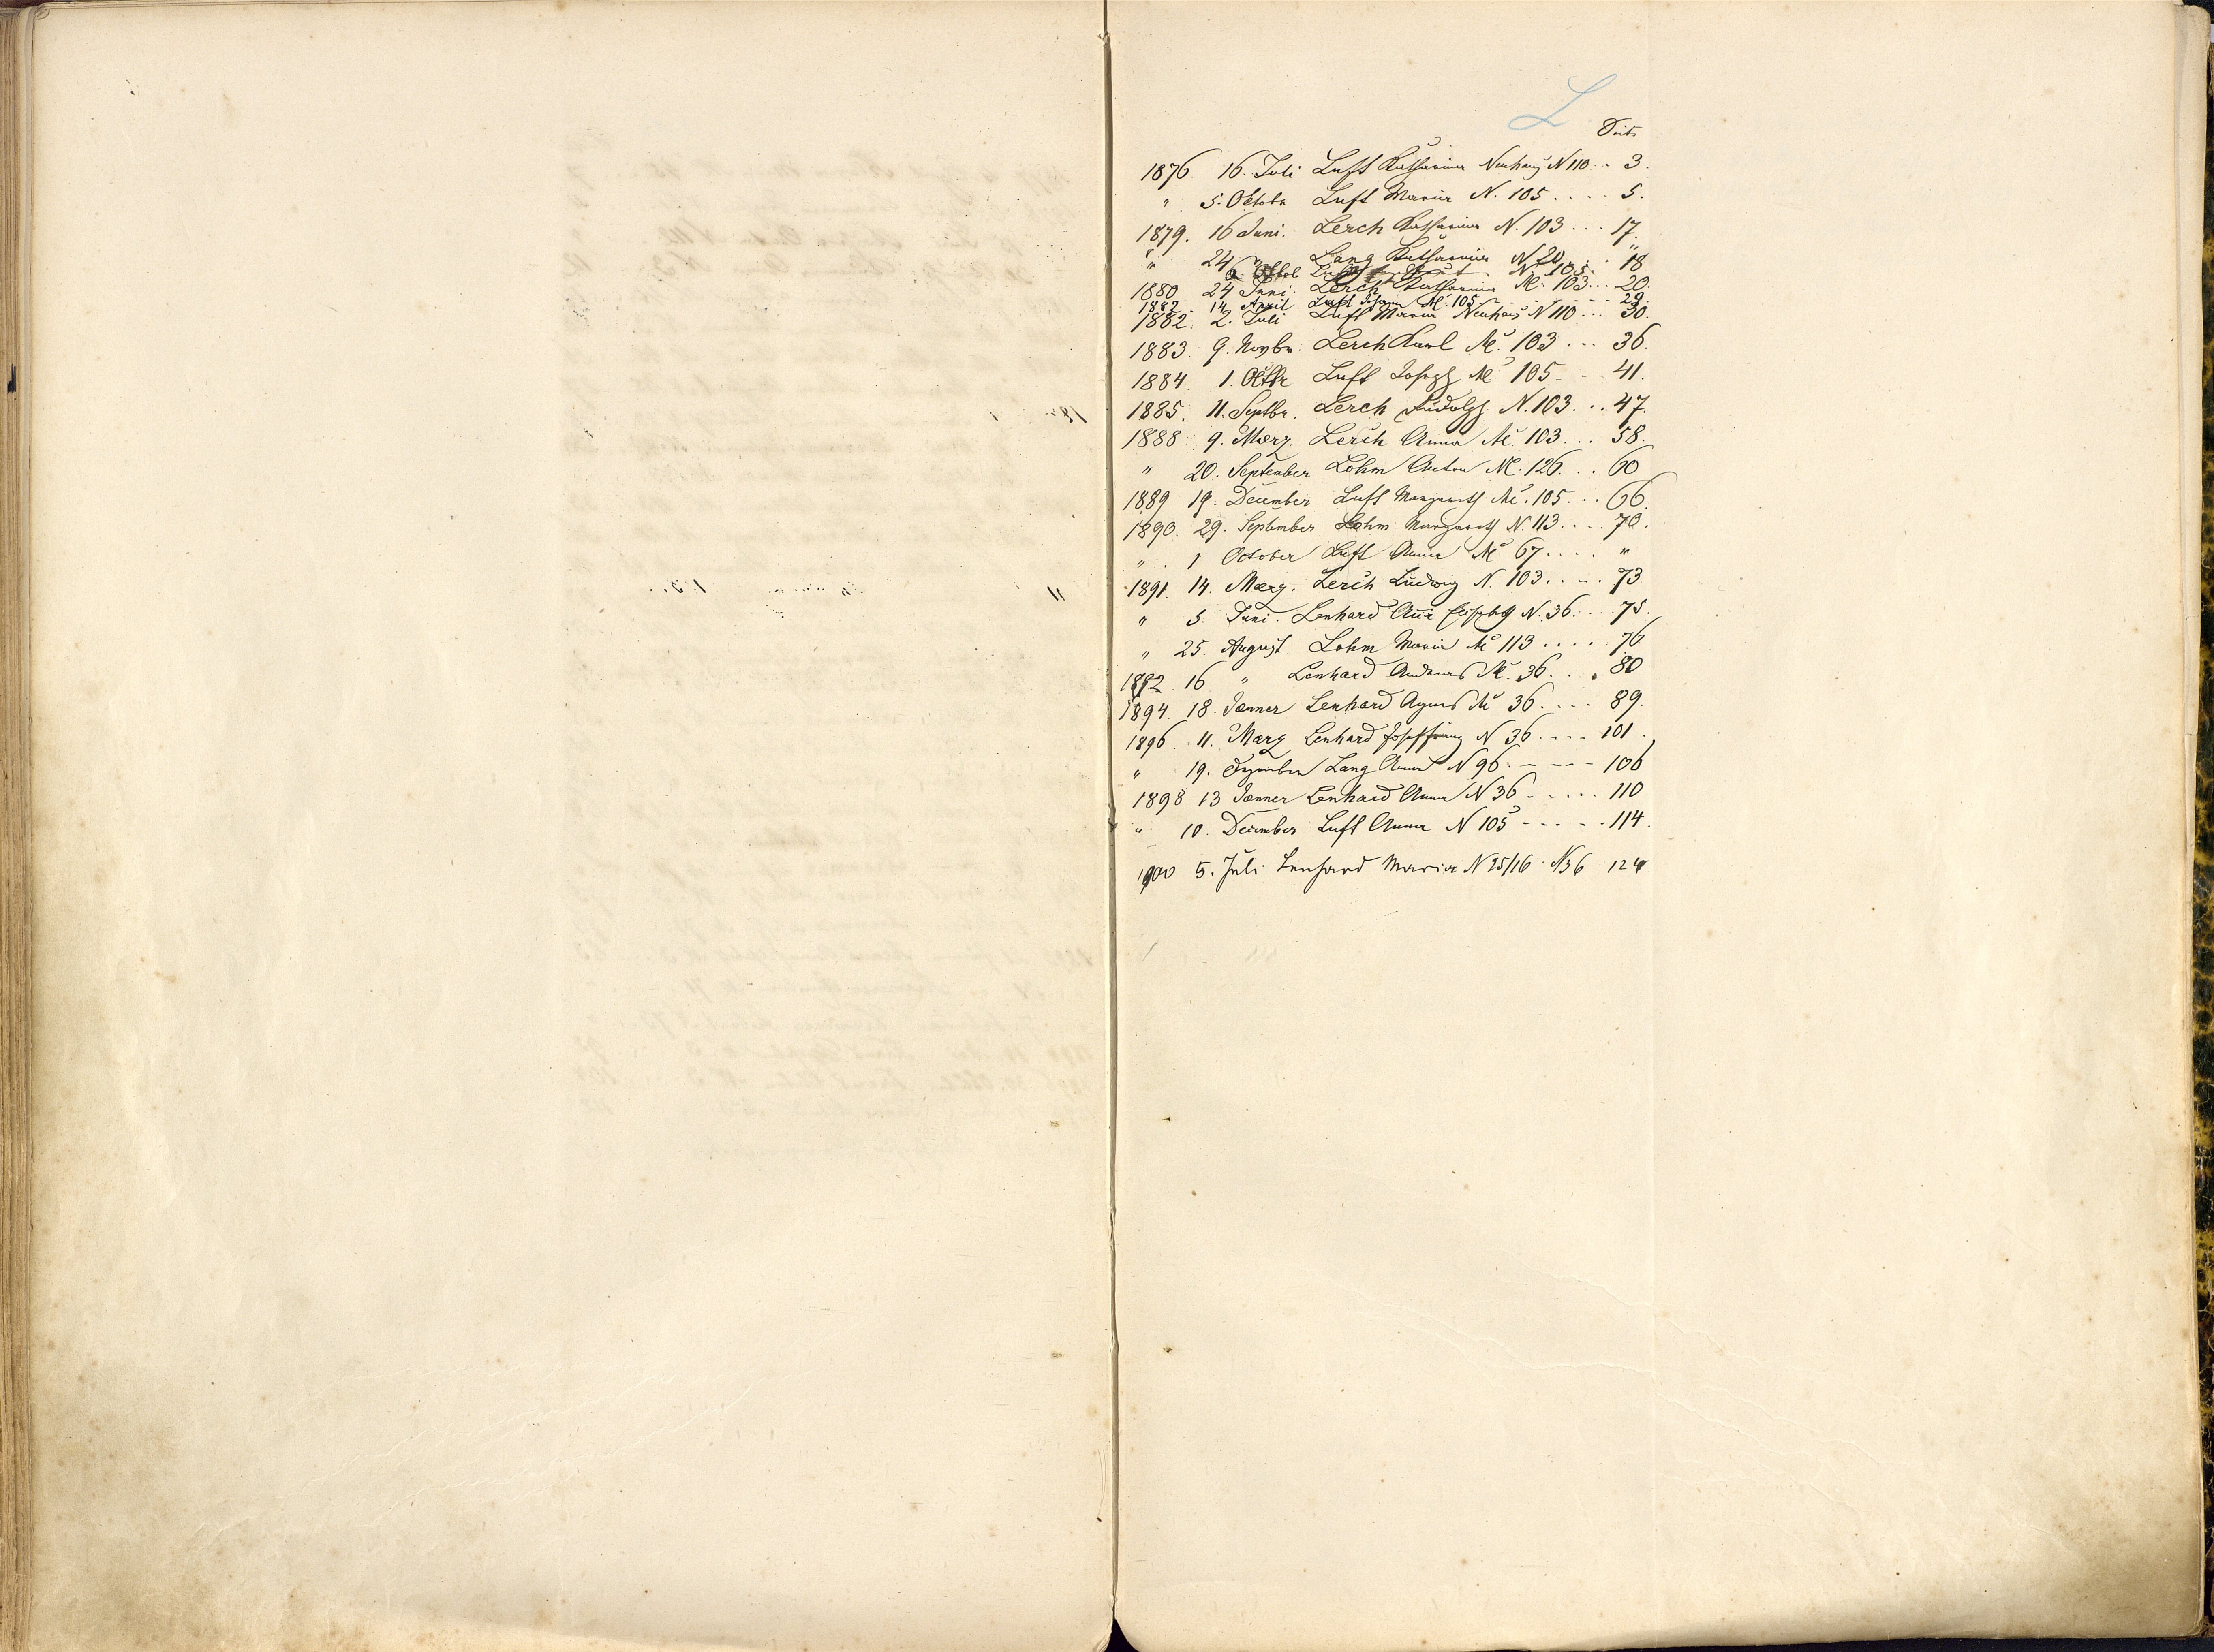 L
Seite
1876. 16. Juli Luft Katharina Neuhaus N 110 .. 3.
" 5. Oktobr Luft Maria N. 105 .... 5.
1879. 16 Juni. Lerch Katharina N. 103 ... 17.
" 24 " Lang Katharina N 20 .. 18
6. Oktob. N 105 "
1880 24 Juni. Lerch Katharina No 103 ... 20.
1882. 14 April Luft Johann No 105 - - - - 29.
1882. 2. Juli Luft Maria Neuhaus N 110 ... 30.
1883. 9. Novbr. Lerch Karl No 103 ... 36.
1884. 1. Octbr Luft Joseph No 105 - - 41.
1885. 11. Septbr. Lerch Rudolph N. 103. .. 47.
1888 9. Maerz. Lerch Anna No 103 ... 58.
" 20. September Lohm Anton No. 126. .. 60
1889 19. December Luft Margareth No. 105 ... 66.
1890. 29. September Lohm Margareth N. 113 .... 70.
" . 1 October Luft Anna No 67 .... "
1891. 14. Maerz. Lerch Ludwig N. 103. .. . 73
" 5. Juni. Lenhard Anna Elisabeth N. 36. .. 75.
" 25. August. Lohm Maria No 113 ..... 76
1892. 16 " Lenhard Andreas No. 36. ... 80
1894. 18. Jænner Lenhard Agnes No 36. ... 89.
1896. 11. Maerz Lenhard Josef Franz N 36. ... 101.
" 19. Dezember Lang Anna N 96. - - - 106
1898 13 Jænner Lenhard Anna N 36 - .... 110
" 10. December Luft Anna N 105 - - - - 114.
1900 5. Juli Lenhard Maria N 25/16 . N 36 124